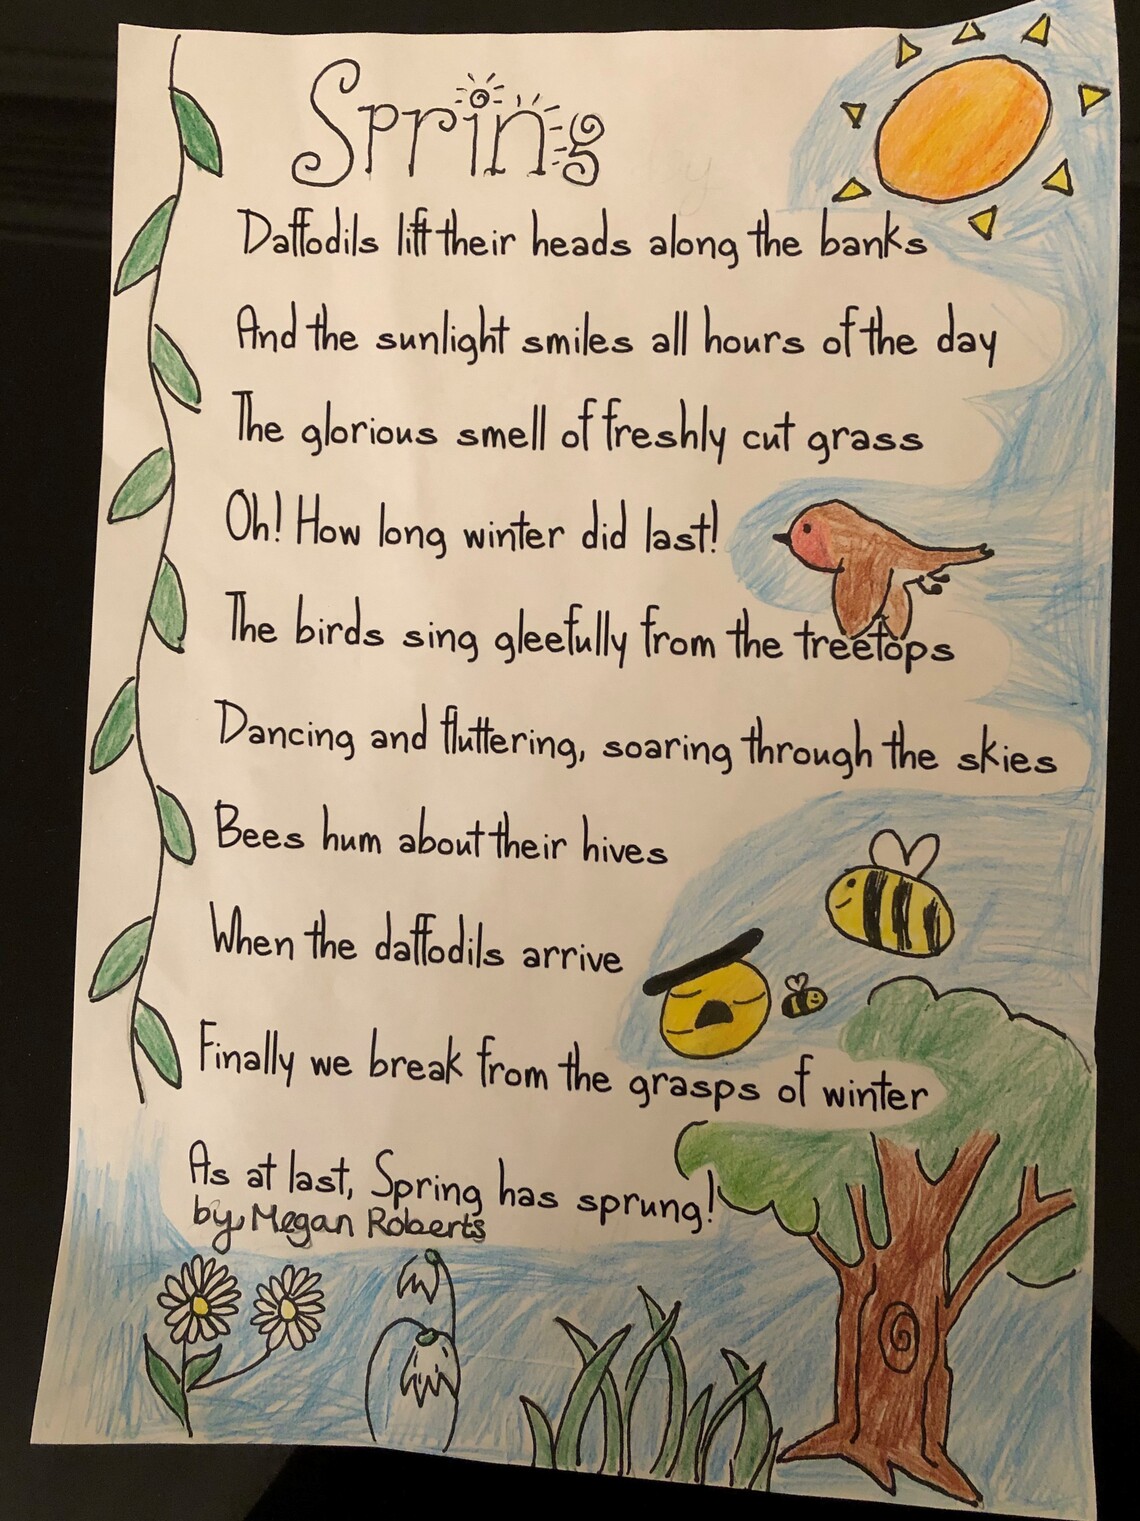 Spring
Daffodils lift their heads along the banks
And the sunlight smiles all hours of the day
The glorious smell of freshly cut grass
Oh! How long winter did last!
The birds sing gleefully from the treetops
Dancing and fluttering, soaring through the skies
Bees hum about their hives
When the daffodils arrive
Finally we break from the grasps of winter
As at last, Spring has sprung!
by Megan Roberts